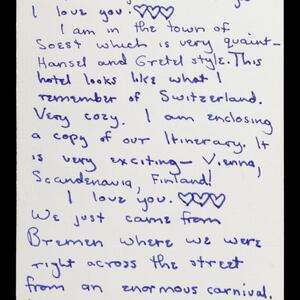 I love you. ♡♡♡
I am in the town of
Soest which is very quaint—
Hansel and Gretel style. This
hotel looks like what I
remember of Switzerland.
Very cozy. I am enclosing
a copy of our Itinerary. It
is very exciting— Vienna,
Scandenavia, Finland!
I love you. ♡♡♡
We just came from
Bremen where we were
right across the street
from an enormous carnival.